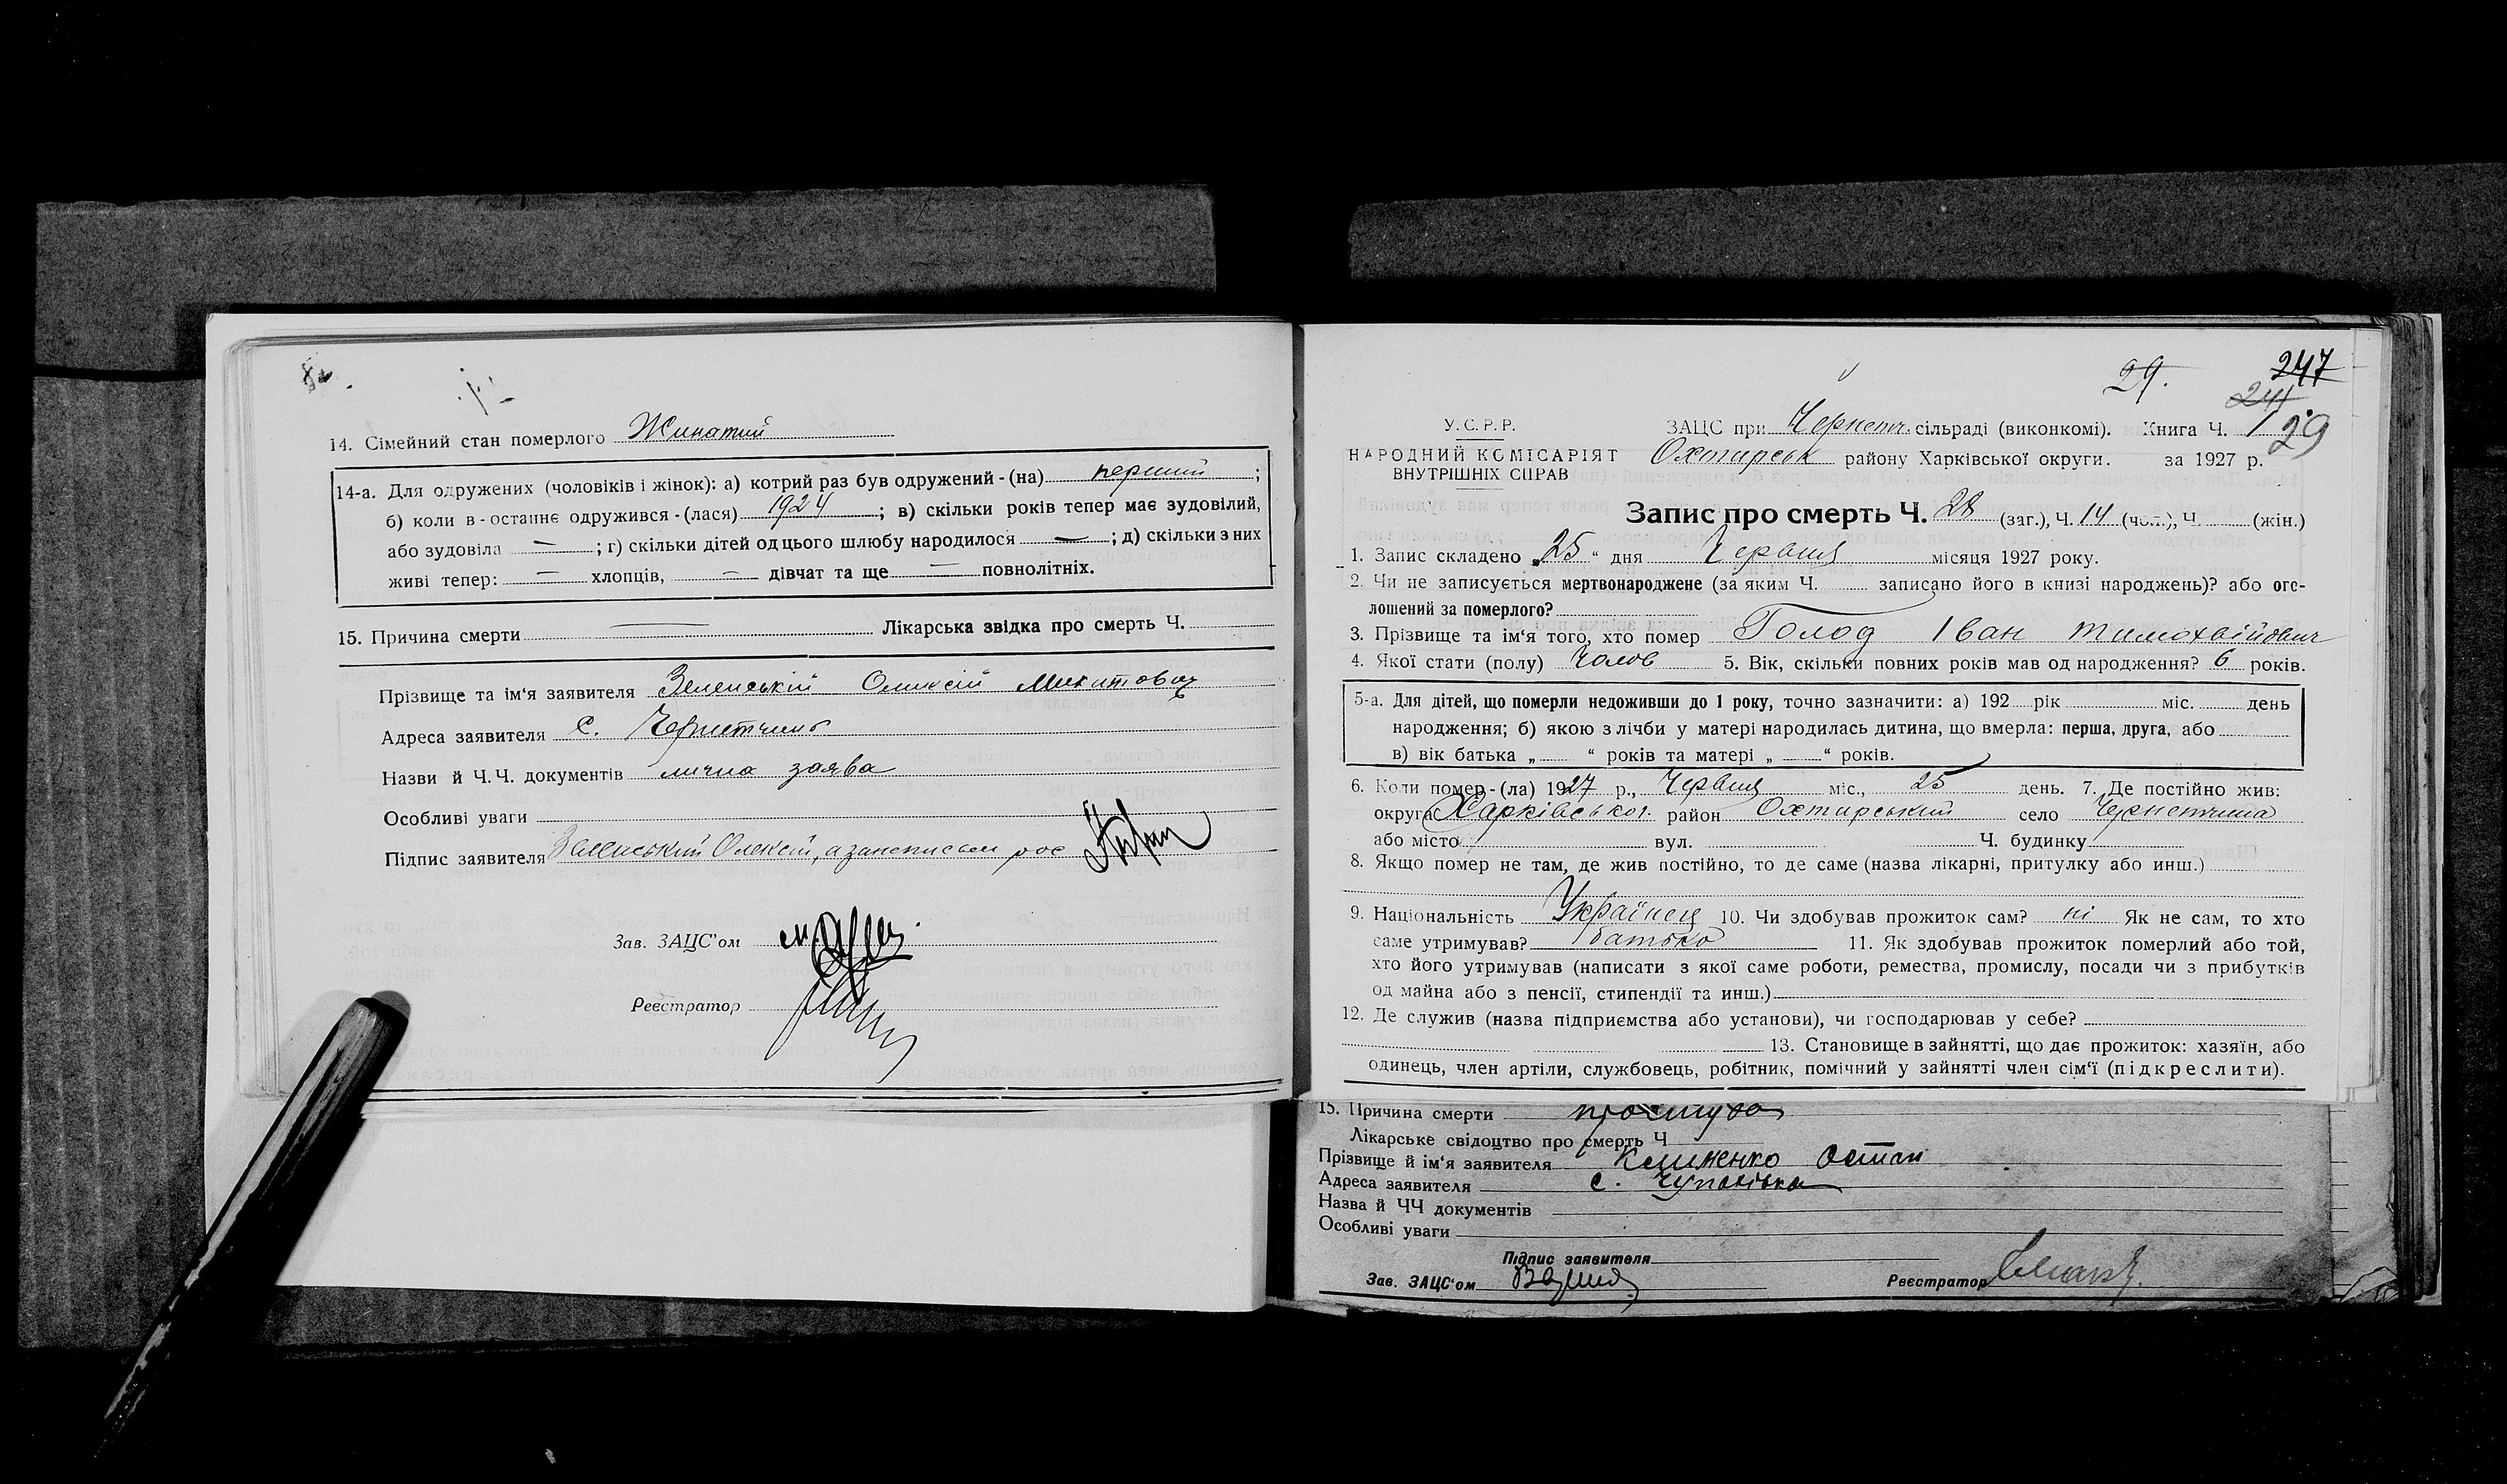 14. Сімейний стан померлого Жинатий
14-а. Для одружених (чоловіків і жінок): а) котрий раз був одружений - (на) перший ;
б) коли в-останнє одружився - (лася) 1924 ; в) скільки років тепер має зудовілий,
або зудовіла — ; г) скільки дітей од цього шлюбу народилося — ; д) скільки з них
живі тепер: — хлопців, — дівчат та ще — повнолітніх.
15. Причина смерти — Лікарська звідка про смерть Ч.
Прізвище та ім'я заявителя Зеленський Олексій Микитович
Адреса заявителя с. Чернетчина
Назви й Ч.Ч. документів лична заява
Особливі уваги
Підпис заявителя Зеленський Олексій, а
Зав. ЗАЦС'ом
Реєстратор
29. 247
241
У.С.Р.Р. ЗАЦС при Чернетч. сільраді (виконкомі). Книга Ч. 1 29
НАРОДНИЙ КОМІСАРІЯТ Охтирськ району Харківської округи. за 1927 р.
ВНУТРІШНІХ СПРАВ
Запис про смерть Ч. 28 (заг.), Ч. 14 (чол.), Ч. (жін.)
1. Запис складено „25“ дня Червця місяця 1927 року.
2. Чи не записується мертвонароджене (за яким Ч. записано його в книзі народжень)? або ого-
лошений за померлого?
3. Прізвище та ім'я того, хто помер Голод Іван Тимохвійович
4. Якої стати (полу) Чолов 5. Вік, скільки повних років мав од народження? 6 років.
5-а. Для дітей, що померли недоживши до 1 року, точно зазначити: а) 192 рік міс. день
народження; б) якою з лічби у матері народилась дитина, що вмерла: перша, друга, або
в) вік батька „ “ років та матері „ “ років.
6. Коли помер - (ла) 1927 р., Червця міс., 25 день. 7. Де постійно жив:
округа Харківської район Охтирський село Чернетчина
або місто вул. Ч. будинку
8. Якщо помер не там, де жив постійно, то де саме (назва лікарні, притулку або инш.)
9. Національність Українец 10. Чи здобував прожиток сам? ні Як не сам, то хто
саме утримував? батько 11. Як здобував прожиток померлий або той,
хто його утримував (написати з якої саме роботи, ремества, промислу, посади чи з прибутків
од майна або з пенсії, стипендії та инш.)
12. Де служив (назва підприємства або установи), чи господарював у себе?
13. Становище в зайнятті, що дає прожиток: хазяїн, або
одинець, член артіли, службовець, робітник, помічний у зайнятті член сім'ї (підкреслити).
15. Причина смерти простуда
Лікарське свідоцтво про смерть Ч
Прізвище й ім'я заявителя Клименко Остап
Адреса заявителя с. Чупахівка
Назва й ЧЧ документів
Особливі уваги
Підпис заявителя
Зав. ЗАЦС'ом Реєстратор